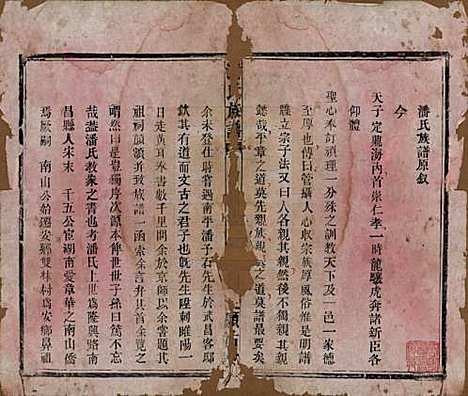 潘氏族譜原叙
今
天子定鼎海內首崇仁孝一時龍驤虎奔諸新臣各
仰體
聖心本訂領理一分殊之訓教天下及一邑一家德
至厚也傳曰管攝人心收宗族厚風俗惟是明譜
牒立宗子法又曰人各親其親然後不獨親其親
懿哉平章之道莫先親族親族之道莫諸最要矣
余未登仕時曾遇南平潘子石先生於武昌客邸
欽其有道而文古之君子也旣先生陞刺睢陽一
日黄耳奉書數千里問余於京師以余嘗題其
祖祠顏額并致族譜一函索余言并其首余覽之
喟然曰世豐獨序次源本俾世世子孫曰篤不忘
哉盖潘氏教象之胄也考潘氏上世爲隆興路南
昌縣人宋末 千五公官湖南愛章華之南山僑
焉厥嗣 南山公始遷安鄉雙林村爲安鄉鼻祖